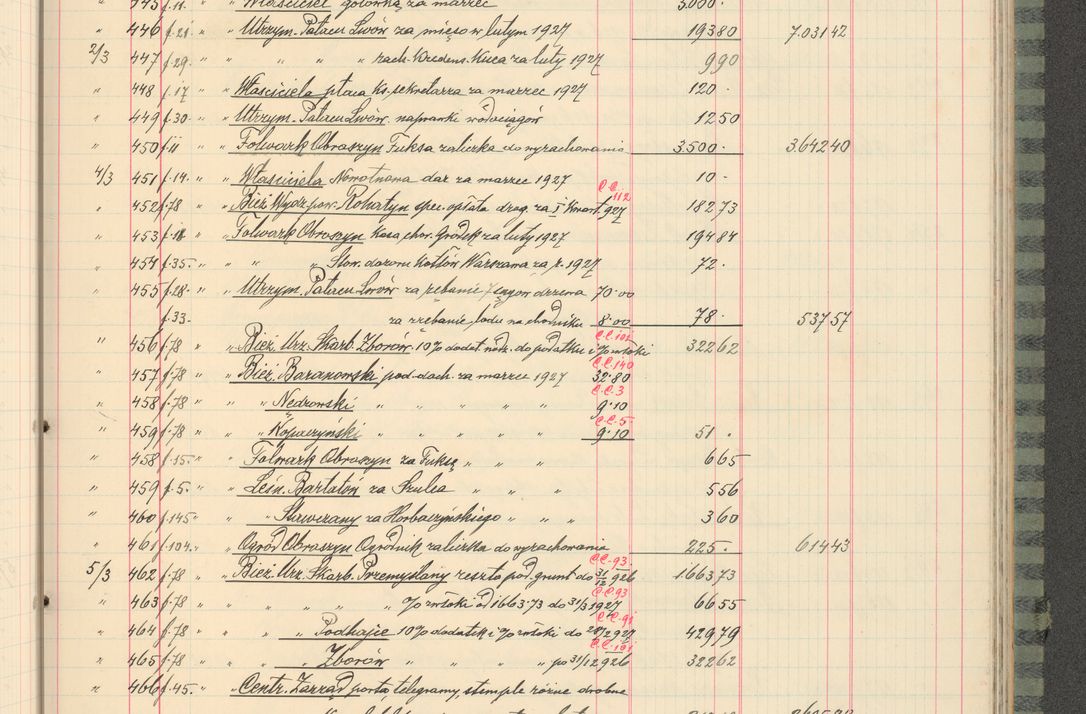 " 445 f.11. " " Właściciel gotówką za marzec 3.000.
" 446 f.21. " " Utrzym. Pałacu Lwów za mięso w lutym 1927 19380 7.03142
2/3 447 f.29. " " " " " " rach. Kredens. Kuca za luty 1927 990
" 448 f.17 " " Właściciela płaca Ks. sekretarza za marzec 1927 120.
" 449 f.30. " " Utrzym. Pałacu Lwów. naprawki wodociągów 1250
" 450 f11 " " Folwark Obroszyn Fuksa zaliczka do wyrachowania 3.500. 3.64240
4/3 451 f.14. " " Właściciela Nowotnowa dar za marzec 1927 10.
C.C. 112
" 452 f.78 " " Bież. Wydz. pow. Rohatyn spec. opłata drog. za I kwart. 927 18273
" 453 f.11. " " Folwark Obroszyn Kasa chor. Gródek za luty 1927 19484
" 454 f.35. " " " Stow. dozoru Kotłów Warszawa za r. 1927 72.
" 455 f.28. " " Utrzym. Pałacu Lwów za rąbanie drzewa 70.00
f.33. za zrębanie lodu na chodniku 8.00 78. 53757
C.C. 101
" 456 f.78 " " Bież. Urz. Skarb. Zborów. 10% dodat. nadz. do podatku i % zwłoki 32262
C.C. 140
" 457 f.78 " " Bież. Baranowski pod. doch. za marzec 1927 32.80
C.C. 3
" 458 f.78 " " " Nedzowski " " " " " 9.10
C.C. 5.
" 459 f.78 " " " Kopaczynski " " " " " 9.10 51.
" 458 f.15. " " Folwark Obroszyn za Fuksę " " " 665
" 459 f.5. " " Leśn. Bartatów za Szulca " " " 556
" 460 f.145 " " " Stawczany za Horbaczyńskiego " " " 360
" 461 f.104. " " Ogród Obroszyn Ogrodnik zaliczka do wyrachowania 225. 61443
C.C. 93.
5/3 462 f.78 " " Bież. Urz. Skarb. Przemyślany reszta pod. grunt do 31/12 926 166373
C.C. 93
" 463 f.78 " " " " " " % zwłoki od 1663.73 do 31/3 1927 6655
C.C. 91
" 464 f.78 " " " " Podhajce 10% dodatek i % zwłoki do 28/2 927 42979
C.C. 101
" 465 f.78 " " " " Zborów " " " " po 31/12 926 32262
" 466 f.45. " " Centr. Zarząd porta telegramy, stemple różne drobne